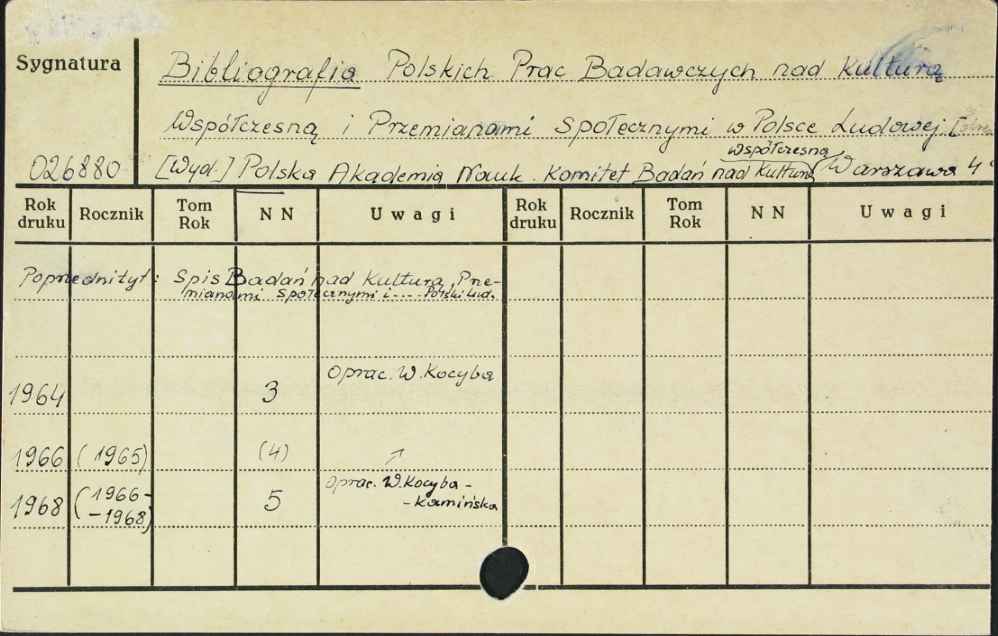 Sygnatura
Bibliografia Polskich Prac Badawczych nad Kulturą
Współczesną i Przemianami Społecznymi w Polsce Ludowej.
współczesną
026880 [Wyd.] Polska Akademia Nauk. Komitet Badań nad Kulturą Warszawa 4°
Rok druku Rocznik Tom Rok N N Uwagi Rok druku Rocznik Tom Rok N N Uwagi
Poprzedni tyt: Spis Badań nad Kulturą, Prze-
mianami Społecznymi i .... Polski Lud.
Oprac. W. Kocyba
1964 3
1966 (1965) (4)
Oprac. W. Kocyba-
1968 (1966- 5 -Kamińska
-1968)